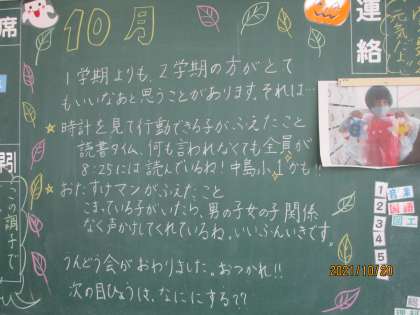 10月
1学期よりも、2学期の方がとて
もいいなあと思うことがあります。それは…
☆時計を見て行動できる子がふえたこと
読書タイム、何も言われなくても全員が
8:25には読んでいるね!中島小1かも!!
☆おたすけマンがふえたこと
こまっている子がいたら、男の子女の子関係
なく声かけしてくれているね。いいふんいきです。
うんどう会がおわりました。おつかれ!!
次の目ひょうは、なにに する??
席
この調子で
連絡
1
2
3
4
5
国語
図工
2021/10/20